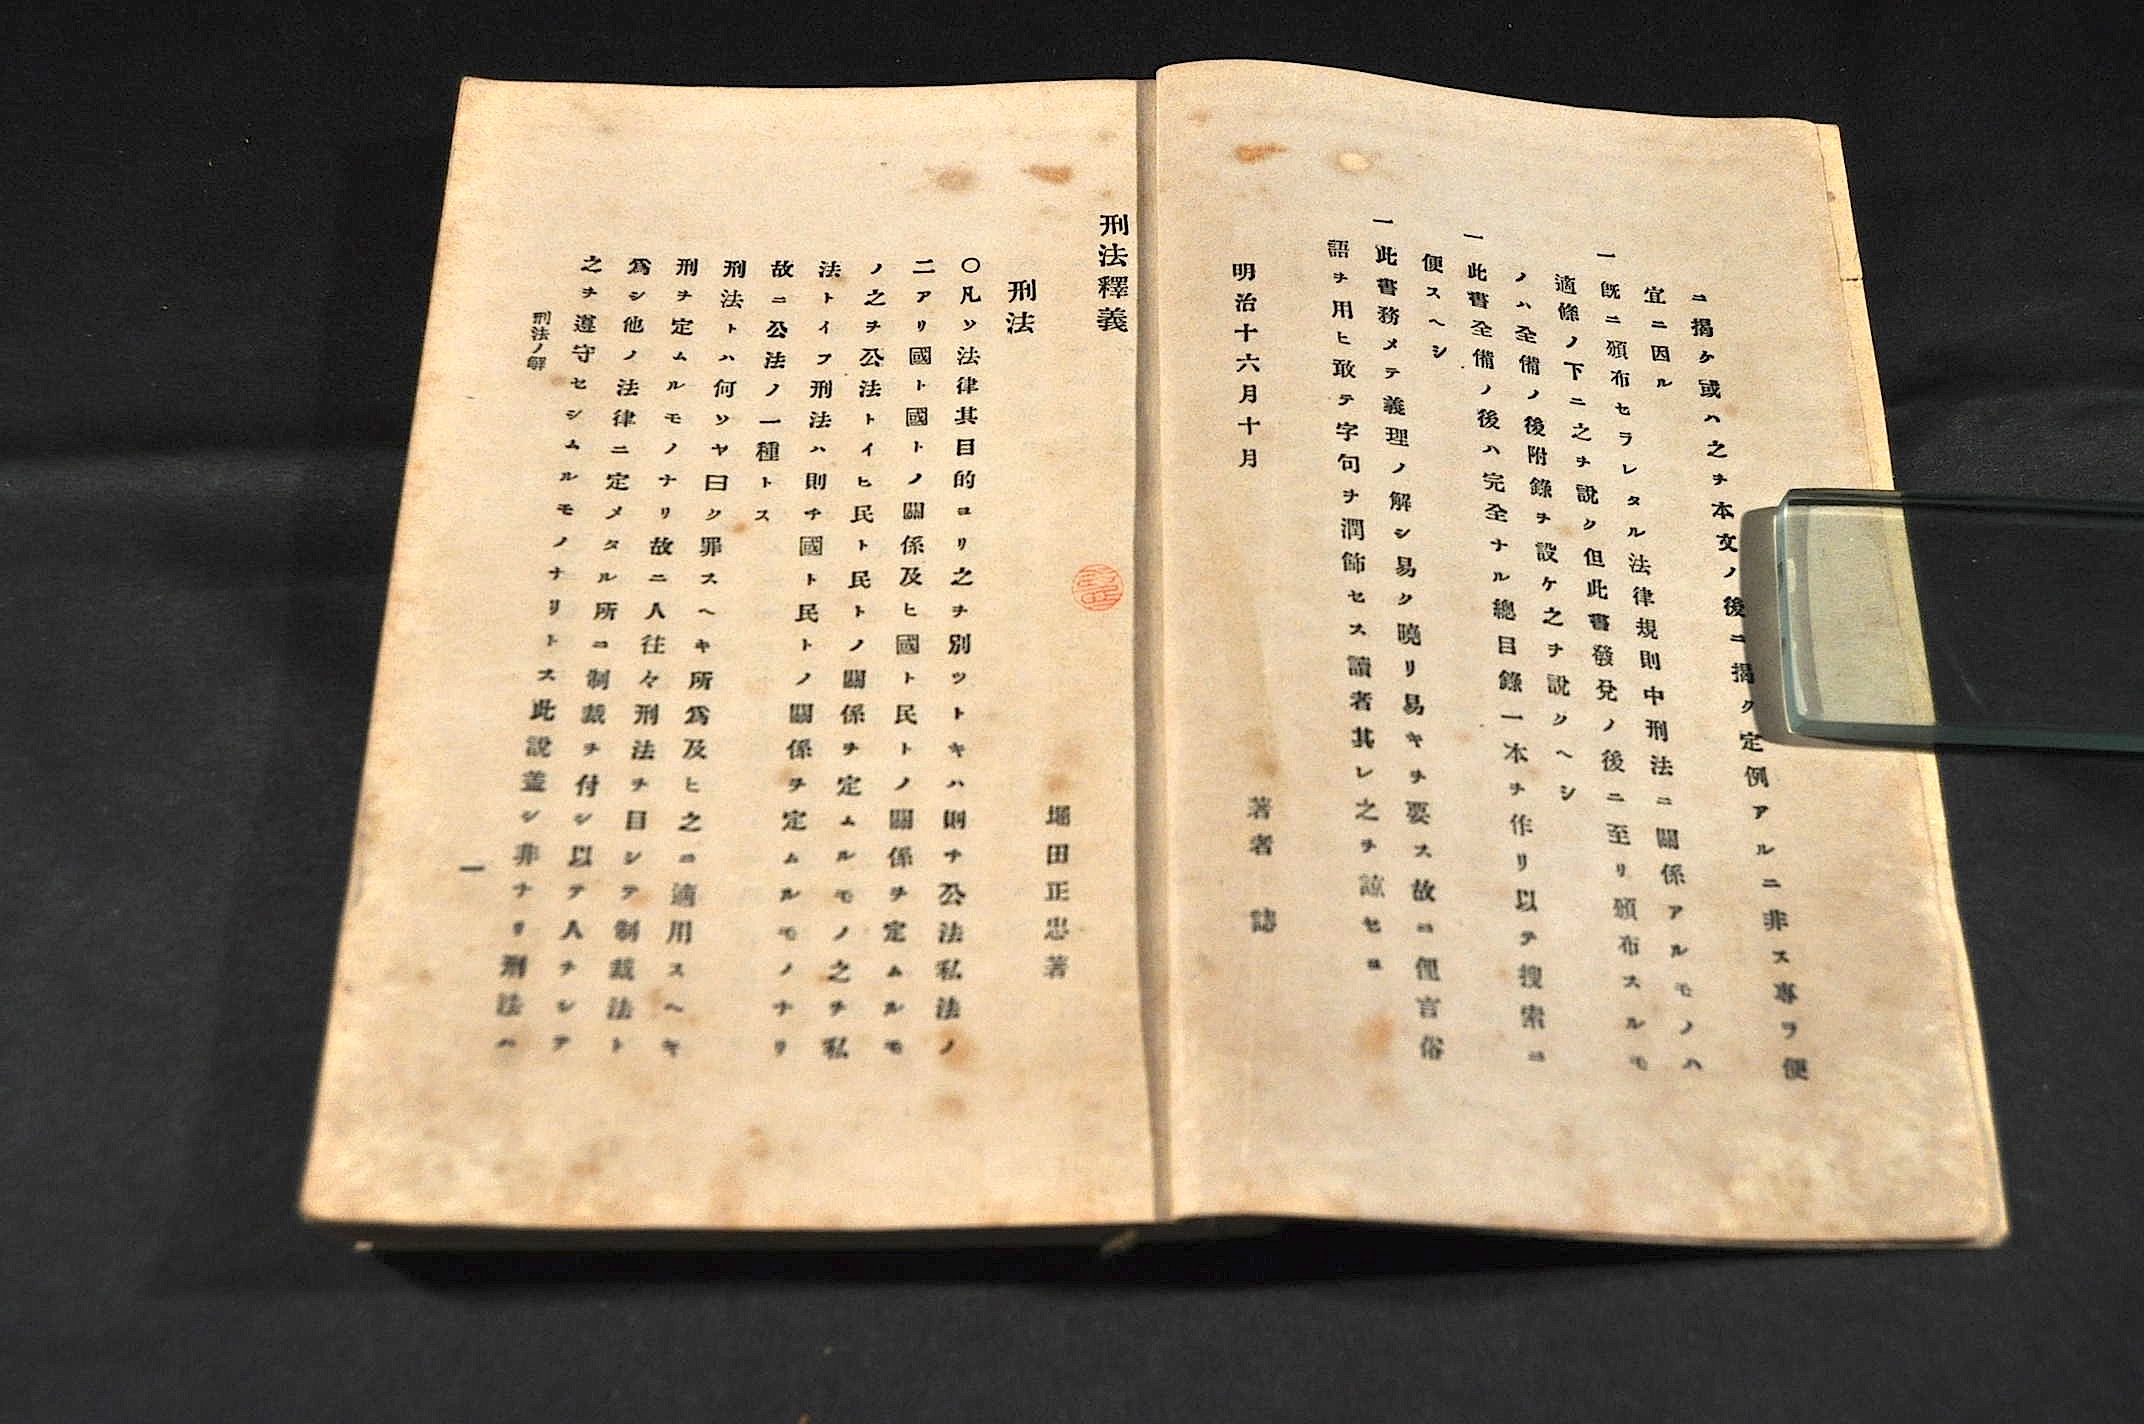 ニ揭ケ或ハ之ヲ本文ノ後ニ揭ク定例アルニ非ス專ヲ便
宜ニ因ル
一既ニ頒布セラレタル法律規則中刑法ニ關係アルモノハ
適條ノ下ニ之ヲ說ク但此書發兌ノ後ニ至リ頒布スルモ
ノハ全備ノ後附錄ヲ設ケ之ヲ說クヘシ
一此書全備ノ後ハ完全ナル總目錄一本ヲ作リ以テ搜索ニ
便スヘシ
一此書務メテ義理ノ解シ易ク曉リ易キヲ要ス故ニ俚言俗
語ヲ用ヒ敢テ字句ヲ潤飾セス讀者其レ之ヲ諒セヨ
明治十六月十月
著者誌
刑法釋義
堀田正忠著
刑法
〇凡ソ法律其目的ヨリ之ヲ別ツトキハ則チ公法私法ノ
二アリ國ト國トノ關係及ヒ國ト民トノ關係ヲ定ムルモ
ノ之ヲ公法トイヒ民ト民トノ關係ヲ定ムルモノ之ヲ私
法トイフ刑法ハ則チ國ト民トノ關係ヲ定ムルモノナリ
故ニ公法ノ一種トス
刑法トハ何ソヤ曰ク罪スヘキ所爲及ヒ之ニ適用スヘキ
刑ヲ定ムルモノナリ故ニ人往々刑法ヲ目シテ制裁法ト
爲シ他ノ法律ニ定メタル所ニ制裁ヲ付シ以テ人ヲシテ
之ヲ遵守セシムルモノナリトス此說蓋シ非ナリ刑法ハ
刑法ノ解
一